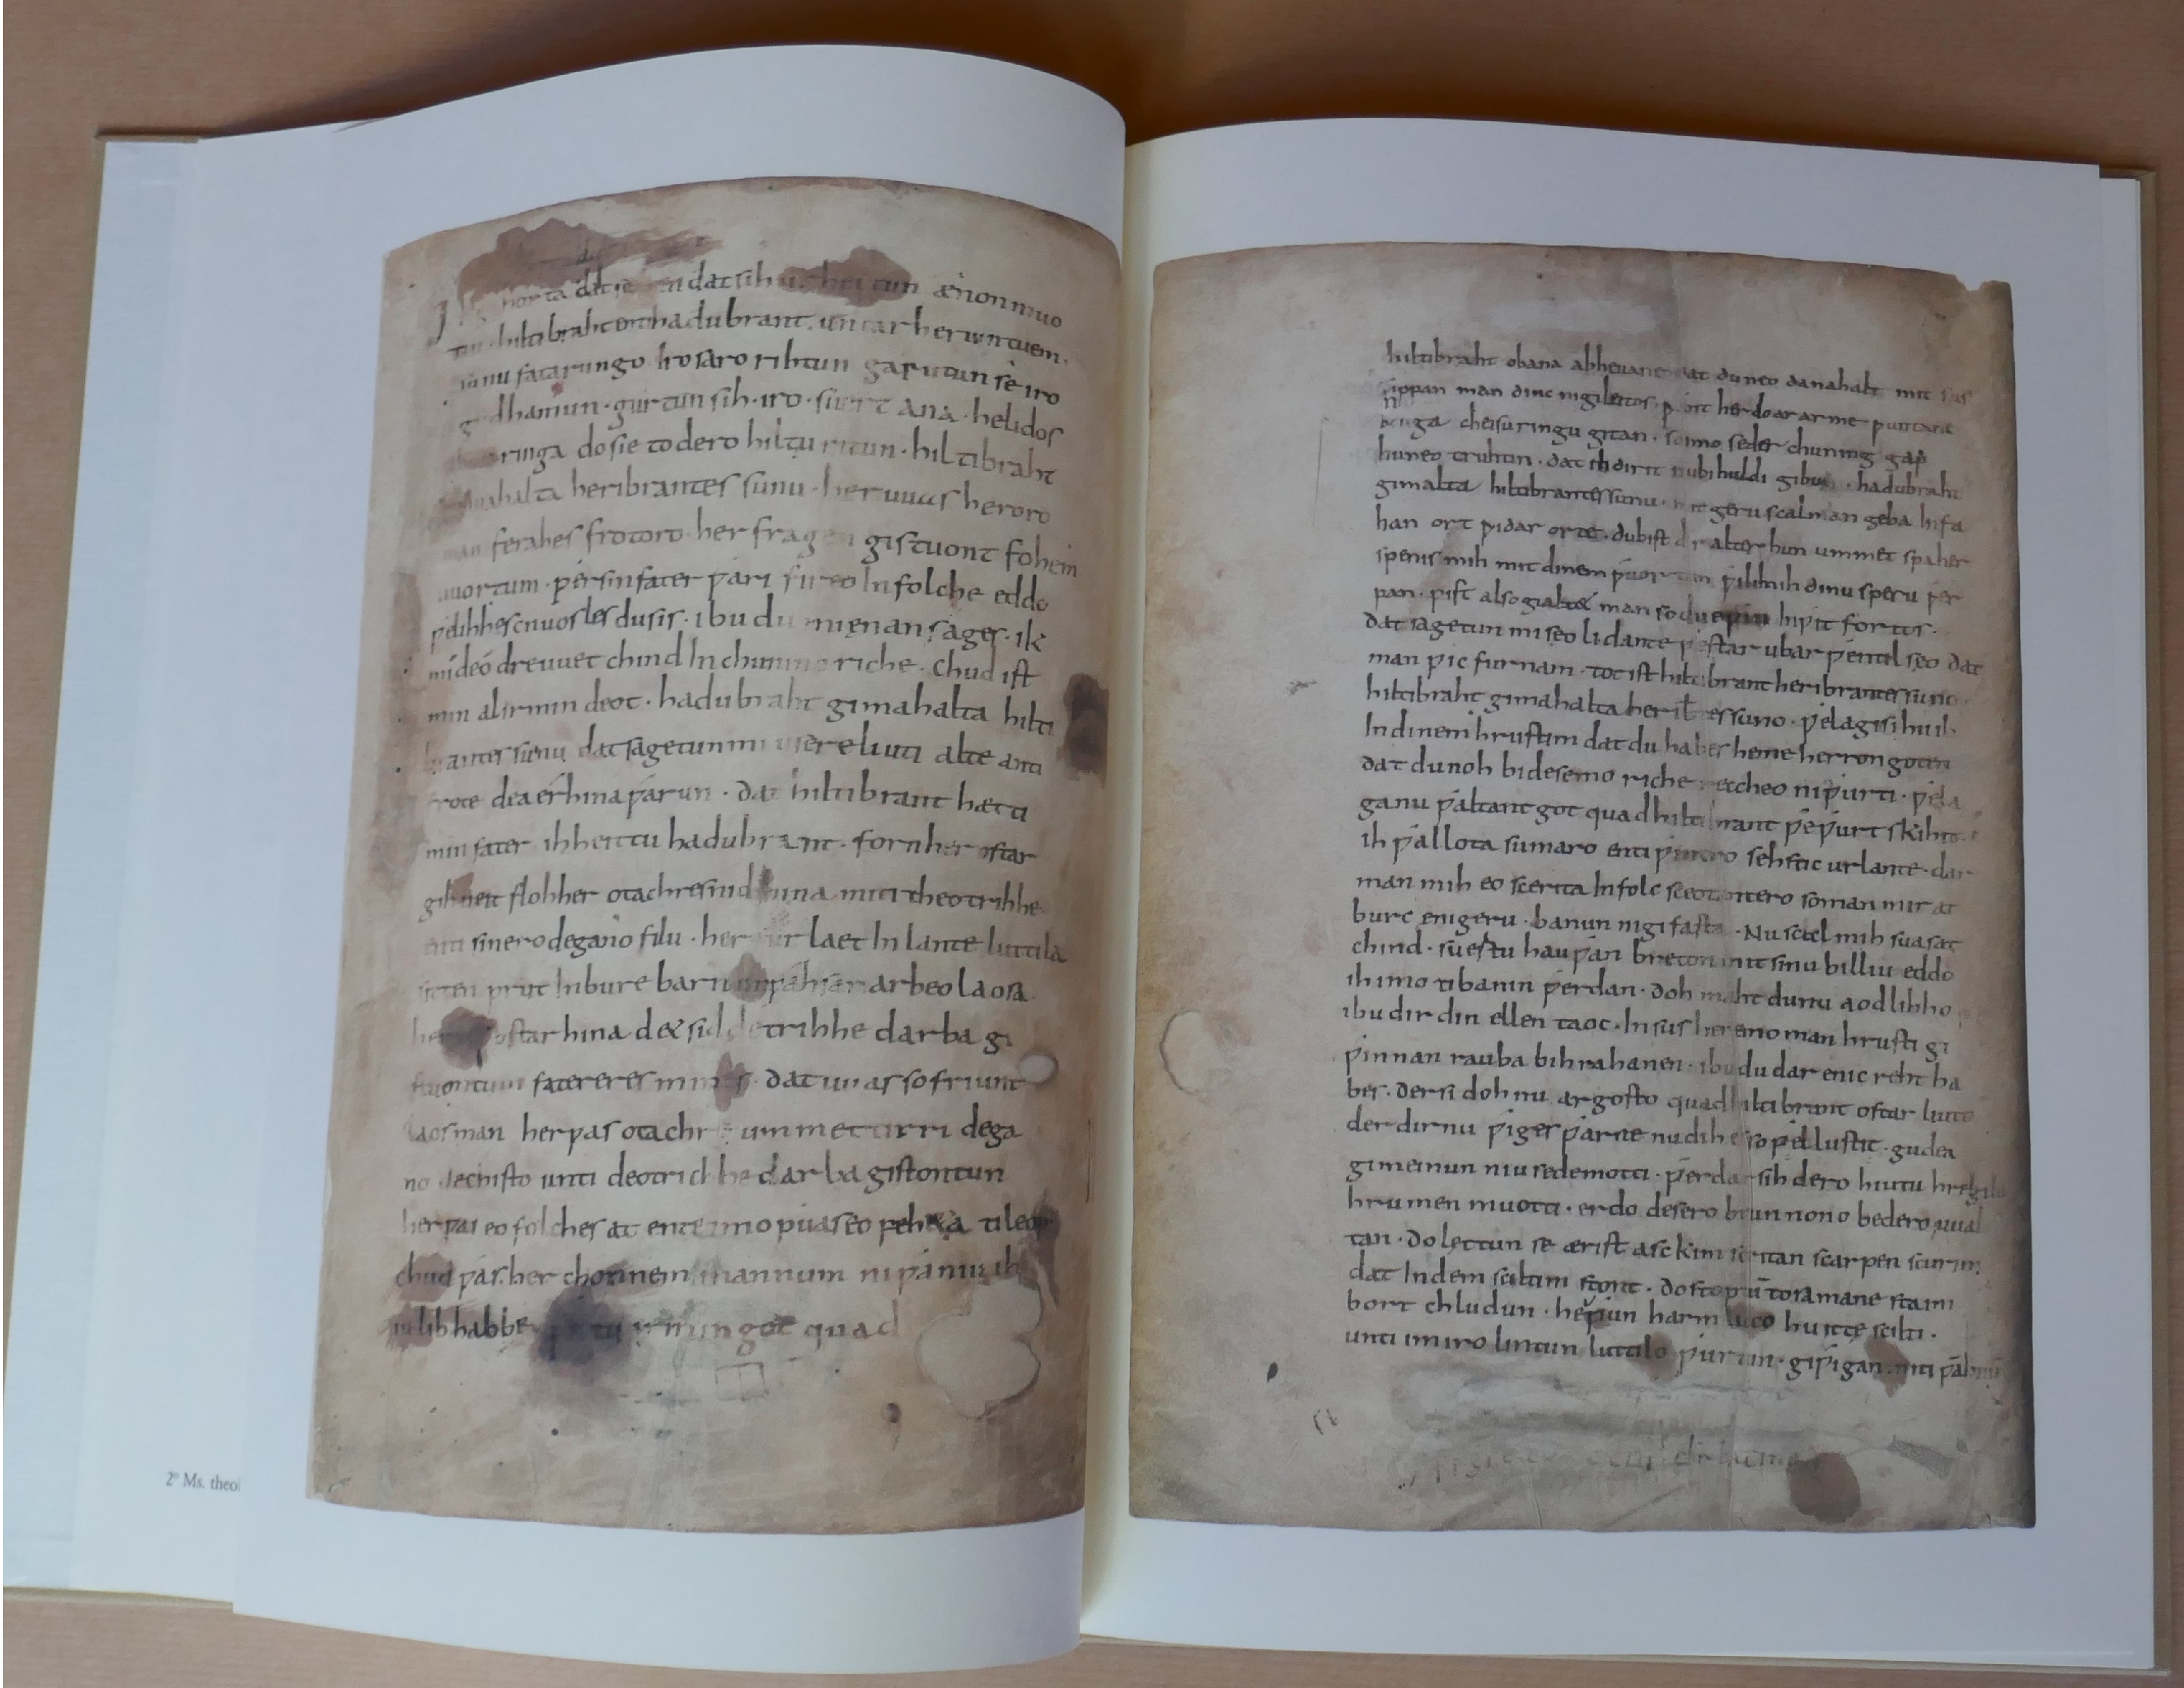 horta dat ænon muo
tin · hiltibraht enti hadubrant · untar heriuntuem ·
sunu fatarungo iro saro rihtun garutun sê iro
gudhamun · gurtun sih · iro · suert ana · helidos
ringa do sie to dero hiltu ritun · hiltibraht
heribrantes sunu · her uuas heroro
ferahes frotoro · her gistuont fohem
uuortum · ƿer sin fater ƿari In folche eddo
ƿelihhes cnuosles du sis · ibu du mi enan sages · ik
mi de odre uuet chind In riche · Chud ist
min al irmin deot · hadubraht gimahalta hilti
brantes sunu dat sagetun mi usere liuti alte anti
frote dea érhina ƿarun · dat hiltibrant hætti
min fater ih heittu hadubrant · forn her ostar
gihueit floh her otachres nid hina miti theotrihhe
enti sinero degano filu · her fur laet In lante luttila
sitten prut In bure barn unƿahsan arbeo laosa
ostar hina det sid detrihhe darba gi
stuontun fateres mines · dat uuas so friunt
laos man her ƿas otachre ummet tirri dega
no dechisto unti deotrichhe darba gistontun
her ƿas eo folches at ente imo ƿuas eo feheta ti leop
chud ƿas her chonnem mannum ni ƿaniu ih
iu lib habbe irmin got quad
hiltibraht obana ab heuane dat du neo danahalt mit sus
sippan man dinc ni gileitos · ƿant her do ar arme ƿuntane
bouga cheisuringu gitan · so imo seder chuning gap
huneo truhtin · dat ih dir it nu bi huldi gibu · hadubraht
gimalta hiltibrantes sunu · mit geru scal man geba Infa
han ort ƿidar orte · du bist dir alter hun ummet spaher
spenis mih mit dinem ƿuortun ƿili mih dinu speru ƿer
pan · pist also gialtet man so du eƿin Inƿit fortos ·
dat sagetun mi seo lidante ƿestar ubar ƿentilseo dat
man ƿic furnam · tot ist hiltibrant heribrantes suno ·
hiltibraht gimahalta heribtes suno · ƿela gisihu ih
In dinem hrustim dat du habes heme herron goten
dat du noh bi desemo riche reccheo ni ƿurti · ƿela
ga nu ƿaltant got quad hiltibrant ƿeƿurt skihit
ih ƿallota sumaro enti ƿintro sehstic ur lante · dar
man mih eo scerita In folc sceotantero so man mir at
burc enigeru · banun ni gifasta · Nu scal mih suasat
chind · suertu hauƿan breton mit sinu billiu eddo
ih imo ti banin ƿerdan · doh maht du nu aodlihho
ibu dir din ellen taoc · In sus heremo man hrusti gi
ƿinnan rauba bihrahanen · ibu du dar enic reht ha
bes · der si doh nu argosto quad hiltibrant ostar liuto
der dir nu ƿiges ƿarne nu dih es so ƿel lustit · gudea
gimeinun niuse de motti · ƿerdar sih dero hiutu hregilo
hrumen muotti · erdo desero brunnono bedero uual
tan · do lettun se ærist asckim scritan scarpen scurim
dat In dem sciltim stont · do stoptū to samane staim
bort chludun · heƿun harmlicco huitte scilti ·
unti im iro lintun luttilo ƿurtun · giƿigan miti ƿabnū
2° Ms. theol